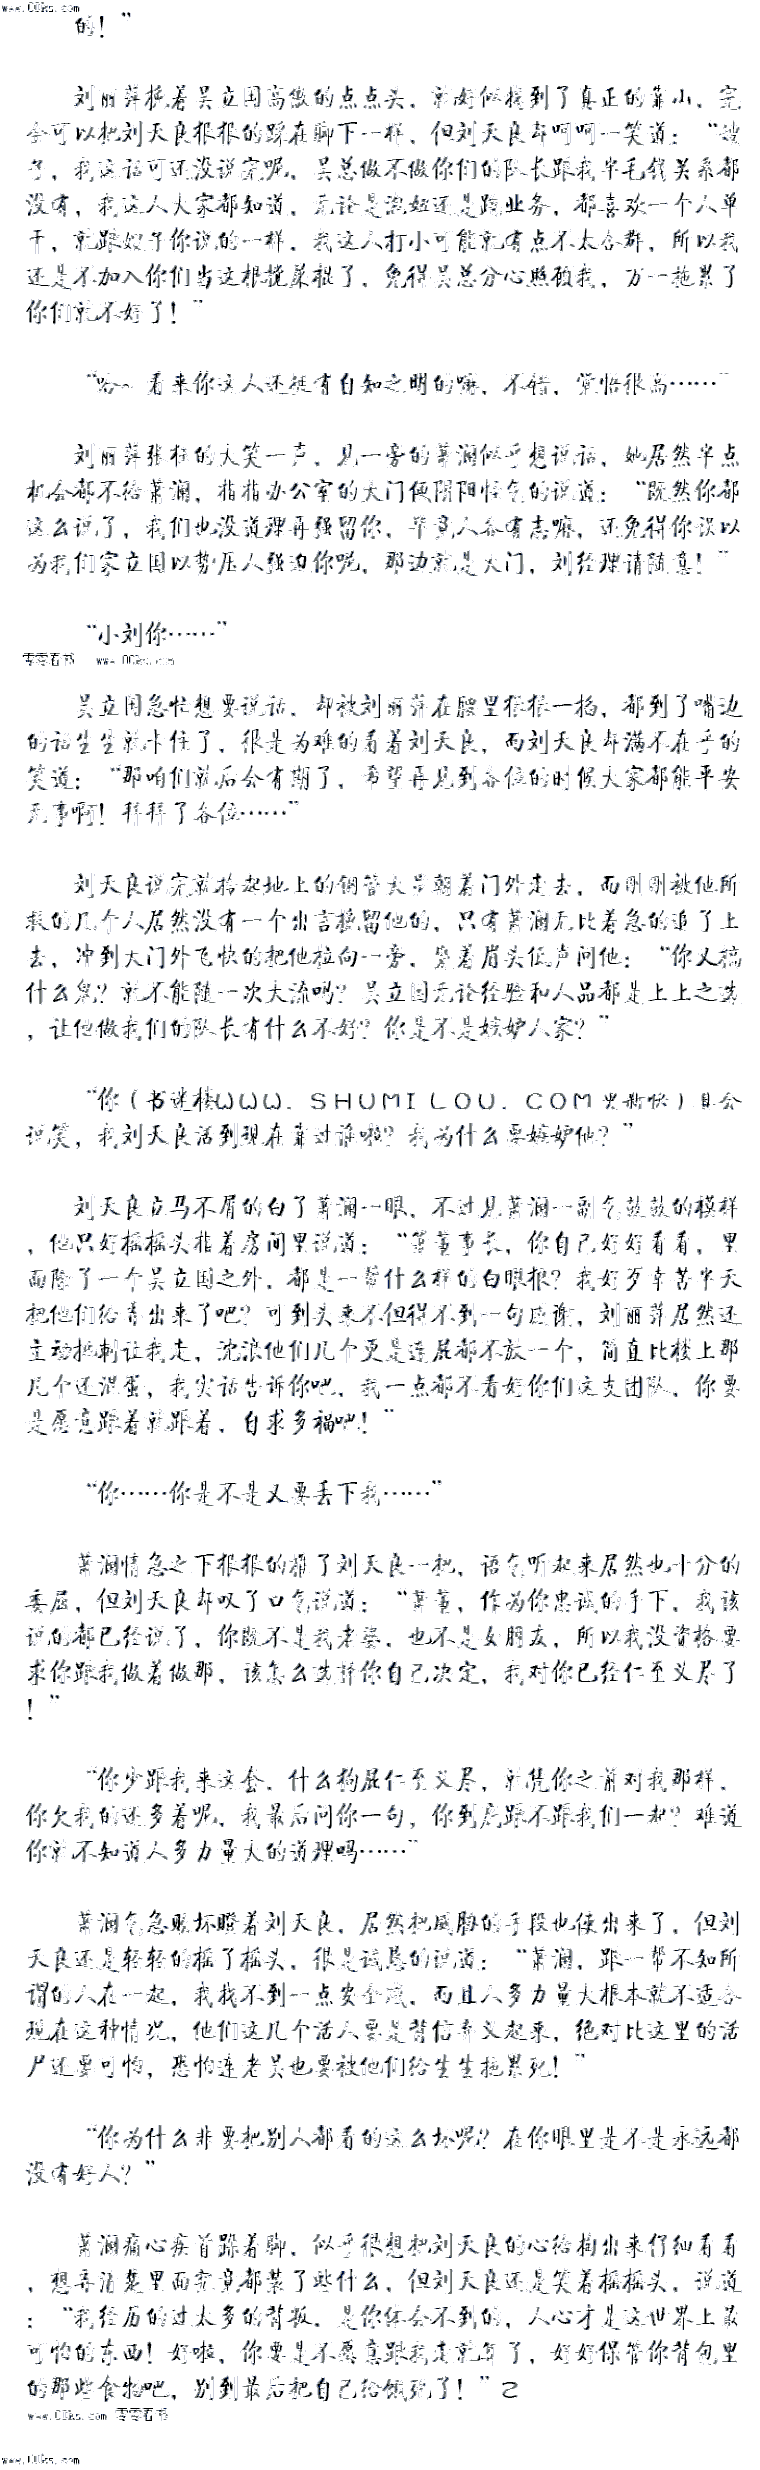 www.00ks.com
的！”
刘丽萍挽着吴立国高傲的点点头，就好似找到了真正的靠山，完
全可以把刘天良狠狠的踩在脚下一样，但刘天良却呵呵一笑道：“嫂
子，我这话可还没说完呢，吴总做不做你们的队长跟我半毛钱关系都
没有，我这人大家都知道，无论是泡妞还是跑业务，都喜欢一个人单
干，就跟嫂子你说的一样，我这人打小可能就有点不太合群，所以我
还是不加入你们当这根搅屎棍了，免得吴总分心照顾我，万一拖累了
你们就不好了！”
“哈~看来你这人还挺有自知之明的嘛，不错，觉悟很高……”
刘丽萍张狂的大笑一声，见一旁的萧澜似乎想说话，她居然半点
机会都不给萧澜，指指办公室的大门便阴阳怪气的说道：“既然你都
这么说了，我们也没道理再强留你，毕竟人各有志嘛，还免得你误以
为我们家立国以势压人强迫你呢，那边就是大门，刘经理请随意！”
“小刘你……”
零零看书 www.00ks.com
吴立国急忙想要说话，却被刘丽萍在腰里狠狠一掐，都到了嘴边
的话生生就卡住了，很是为难的看着刘天良，而刘天良却满不在乎的
笑道：“那咱们就后会有期了，希望再见到各位的时候大家都能平安
无事啊！拜拜了各位……”
刘天良说完就拾起地上的钢管大步朝着门外走去，而刚刚被他所
救的几个人居然没有一个出言挽留他的，只有萧澜无比着急的追了上
去，冲到大门外飞快的把他拉向一旁，皱着眉头低声问他：“你又搞
什么鬼？就不能随一次大流吗？吴立国无论经验和人品都是上上之选
，让他做我们的队长有什么不好？你是不是嫉妒人家？”
“你（书迷楼ＷＷＷ．ＳＨＵＭＩＬＯＵ．ＣＯＭ更新快）真会
说笑，我刘天良活到现在靠过谁啦？我为什么要嫉妒他？”
刘天良立马不屑的白了萧澜一眼，不过见萧澜一副气鼓鼓的模样
，他只好摇摇头指着房间里说道：“萧董事长，你自己好好看看，里
面除了一个吴立国之外，都是一帮什么样的白眼狼？我好歹辛苦半天
把他们给弄出来了吧？可到头来不但得不到一句感谢，刘丽萍居然还
主动挤兑让我走，沈浪他们几个更是连屁都不放一个，简直比楼上那
几个还混蛋，我实话告诉你吧，我一点都不看好你们这支团队，你要
是愿意跟着就跟着，自求多福吧！”
“你……你是不是又要丢下我……”
萧澜情急之下狠狠的推了刘天良一把，语气听起来居然也十分的
委屈，但刘天良却叹了口气说道：“萧董，作为你忠诚的手下，我该
说的都已经说了，你既不是我老婆，也不是女朋友，所以我没资格要
求你跟我做着做那，该怎么选择你自己决定，我对你已经仁至义尽了
！”
“你少跟我来这套，什么狗屁仁至义尽，就凭你之前对我那样，
你欠我的还多着呢，我最后问你一句，你到底跟不跟我们一起？难道
你就不知道人多力量大的道理吗……”
萧澜气急败坏瞪着刘天良，居然把威胁的手段也使出来了，但刘
天良还是轻轻的摇了摇头，很是诚恳的说道：“萧澜，跟一帮不知所
谓的人在一起，我找不到一点安全感，而且人多力量大根本就不适合
现在这种情况，他们这几个活人要是背信弃义起来，绝对比这里的活
尸还要可怕，恐怕连老吴也要被他们给生生拖累死！”
“你为什么非要把别人都看的这么坏呢？在你眼里是不是永远都
没有好人？”
萧澜痛心疾首跺着脚，似乎很想把刘天良的心给掏出来仔细看看
，想弄清楚里面究竟都装了些什么，但刘天良还是笑着摇摇头，说道
：“我经历的过太多的背叛，是你体会不到的，人心才是这世界上最
可怕的东西！好啦，你要是不愿意跟我走就算了，好好保管你背包里
的那些食物吧，别到最后把自己给饿死了！”2
www.00ks.com 零零看书
www.00ks.com